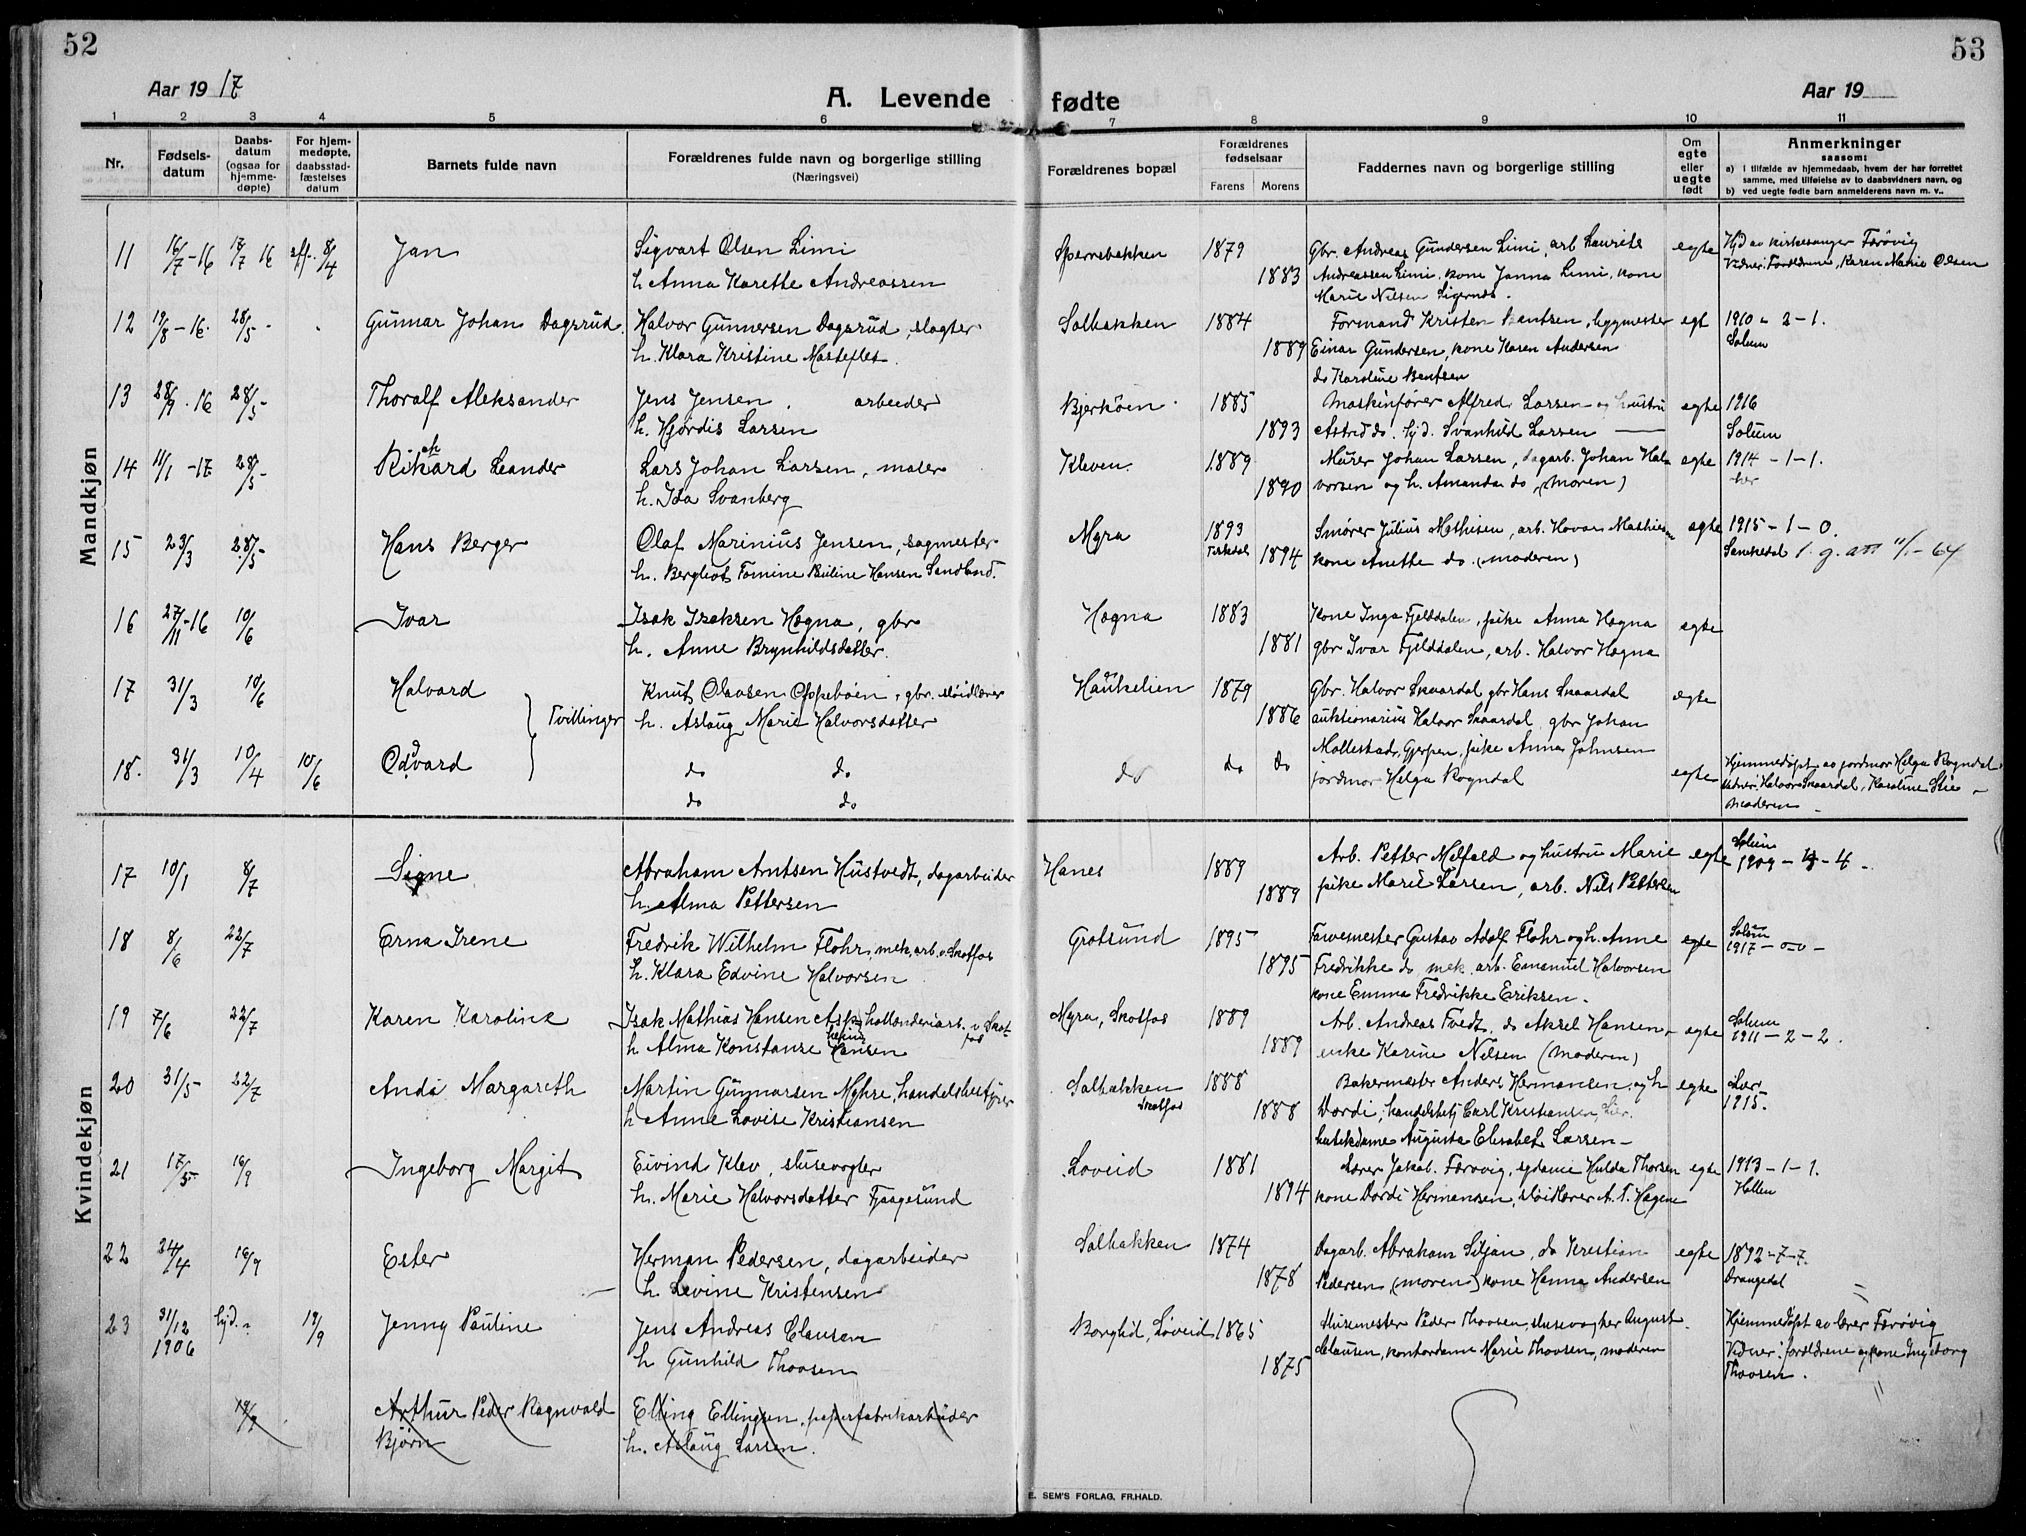 52
53
Aar 1917
A. Levende fødte
Aar 19
1 2 3 4 5 6 7 8 9 10 11
Nr.
Fødsels-
datum
Daabs-
datum
(ogsaa for
hjemme-
døpte)
For hjem-
medøpte,
daabsstad-
fæstelses
datum
Barnets fulde navn
Forældrenes fulde navn og borgerlige stilling
(Næringsvei)
Forældrenes bopæl
Forældrenes
fødselsaar
Farens Morens
Faddernes navn og borgerlige stilling
Om
egte
eller
uegte
født
Anmerkninger
saasom:
a) i tilfælde av hjemmedaab, hvem der har forrettet
samme, med tilføielse av to daabsvidners navn, og
b) ved uegte fødte barn anmelderens navn m. v..
Mandkjøn
11 16/7-16 17/7 16 8/4 Jan Sigvart Olsen Limi Sperrebakken 1879 Gbr. Andreas Gundersen Limi, arb. Laurits egte Hjd av kirkesanger Førøvig
h Anna Karethe Andreassen 1883 Andreassen Limi, kone Janna Limi, kone Vidner: Forældrene, Karen Marie Olsen
Marie Nilsen
12 19/8-16. 28/5 - Gunnar Johan Dagsrud. Halvor Gunnersen Dagsrud, slagter Solbakken 1884 Formand Kristen Bentsen, bygmester egt 1910 - 2 - 1.
h. Klara Kristine 1889 Einar Gundersen, kone Karen Andersen Solum
do Karoline Bentsen
13 28/9.16 28/5 - Thoralf Aleksander Jens Jensen. arbeider Bjerkøen 1885 Maskinfører Alfred Larsen og hustru egte 1916
h. Hjørdis Larsen 1893 Astrid do. Svanhild Larsen Solum
14 11/1-17 28/5- Rikard Leander Lars Johan Larsen, maler Kleven. 1889 Murer Johan Larsen, dagarb. Johan Hal- egte 1914 - 1 - 1.
h. Ida Svanberg 1890 vorsen og h. Amanda do, (moren) her
15 23/3 28/5- Hans Berger Olaf Marinius Jensen, sagmester Myra 1893 Smører Julius Mathisen, arb. Hovar Mathisen egte 1915 - 1 - 0.
h. Bergliot Tomine Pauline Hansen Sandland. 1894 kone Anette do. (moderen) 11/1-64
16 27/11-16 10/6 Ivar Isak Isaksen Høgna, gbr Høgna 1883 Kone Inga Fjelddalen, pike Anna Høgna egte
h. Anne Brynhildsdatter. 1881 gbr Ivar Fjelddalen, arb. Halvor Høgna
17 31/3 10/6 Halvard Knut Olavsen gbr. sløidlærer Haukelien 1879 Gbr. Halvor Skaardal gbr Hans Skaardal egte
Tvillinger h. Aslaug Marie Halvorsdatter 1886 auktionarius Halvor Skaardal, gbr Johan
Mollestad, Gjerpen, pike Anna Johnsen
18. 31/3 10/4 10/6 Oddvard do do do do do jordmor Helga Rogndal egte Hjemmedøpt av jordmor Helga Rogndal
do do Vidner: Halvor Skaardal, Karoline
Moderen -
Kvindekjøn
17 10/1 8/7 Signe Abraham Arntsen Hustvedt, dagarbeider Hanes 1889 Arb. Petter Melfald og hustru Marie egte Solum
1909 - 4 - 4 -
h. Alma Pettersen 1889 pike Marie Larsen, arb. Nils Pettersen
18 8/6 22/7 Erna Irene Fredrik Wilhelm Flohr, mek. arb. v. Skotfos Grotsund 1895 Farvemester Gustav Adolf Flohr og h. Anne egte Solum
1917 - 0-0 -
h. Klara Edvine Halvorsen 1895 Fredrikke do mek. arb. Emanuel Halvorsen
kone Emma Fredrikke Eriksen.
19 7/6 22/7 Karen Karoline Isak Mathias Hansen Ask, hollænderiarb. v Skot-
fos Myra, Skotfos 1889 Arb. Andreas Tvedt, do Aksel Hansen, egte Solum
1911 - 2 - 2.
h Alma Konstanse Hansen 1889 enke Karine Nilsen (moderen)
20 31/5- 22/7 Anda Margareth Martin Gunnarsen Myhre, handelsbestyrer Solbakken
Skotfos 1888 Bakermester Anders Hermansen og h egte Lier
1915.
h Anne Lovise Kristiansen 1888 Dordi, handelsbetj Carl Kristiansen, Lier.
butikdame Augusta Elisabet Larsen -
21 17/5- 16/9 Ingeborg Margit Eivind Klev, slusevogter Løveid 1881 Lærer Jakob Førøvig, sydame Hulda Thorsen egte 1913 - 1 - 1.
h. Marie Halvorsdatter Fjagesund 1894 kone Dordi Hermansen, sløidlærer A. T. Hagene Hollen
22 24/4 16/9 Ester Herman Pedersen, dagarbeider Solbakken 1874 Dagarb. Abraham Siljan, do Kristian egte 1892 - 7 - 7.
h. Levine Kristensen 1878 Pedersen (moren) kone Hanna Andersen Drangedal
23 31/12
1906 hjd. 19/9 Jenny Pauline Jens Andreas Clausen Borglid, Løveid 1865 Slusemester Peder Thovsen, slusevogter August. Hjemmedøpt av lærer Førøvig
h Gunhild Thovsen 1875 Clausen, kontordame Marie Thovsen, moderen Vidner: forældrene og kone Ingeborg
Thovsen.
19/9 Arthur Peder Ragnvald Elling Ellingsen, papirfabrikarbeider
Bjørn h. Aslaug Larsen.
E. SEM'S FORLAG, FR.HALD.